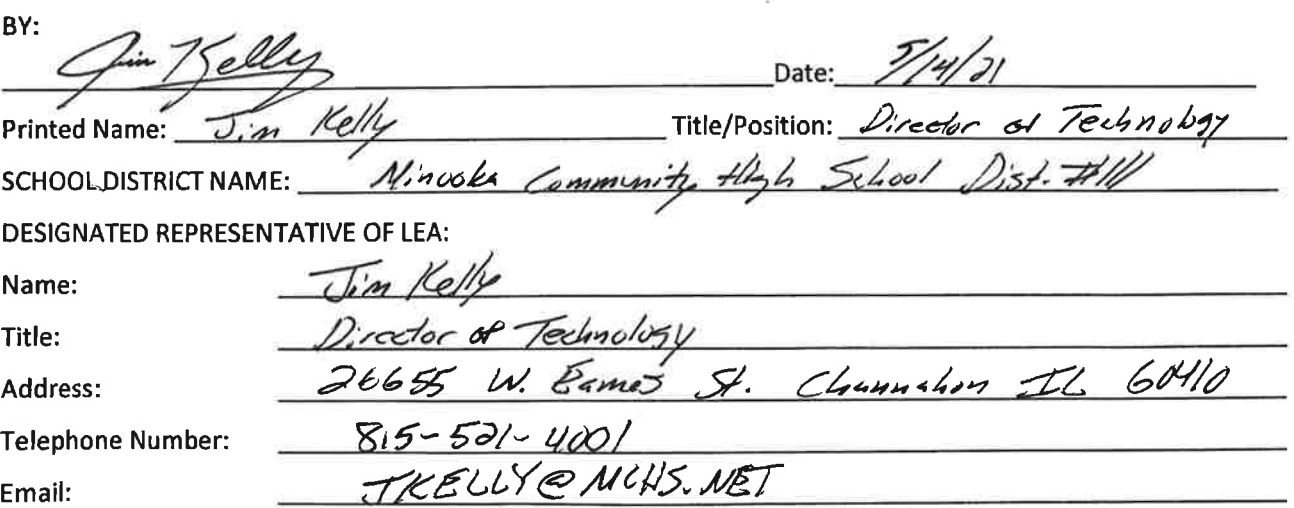 BY:
Jim Kelly Date: 5/14/21
Printed Name: Jim Kelly Title/Position: Director of Technology
SCHOOL DISTRICT NAME: Minooka Community High School Dist. #111
DESIGNATED REPRESENTATIVE OF LEA:
Name: Jim Kelly
Title: Director of Technology
Address: 26655 W. Eames St. Channahon IL 60410
Telephone Number: 815-521-4001
Email: JKELLY@MCHS.NET